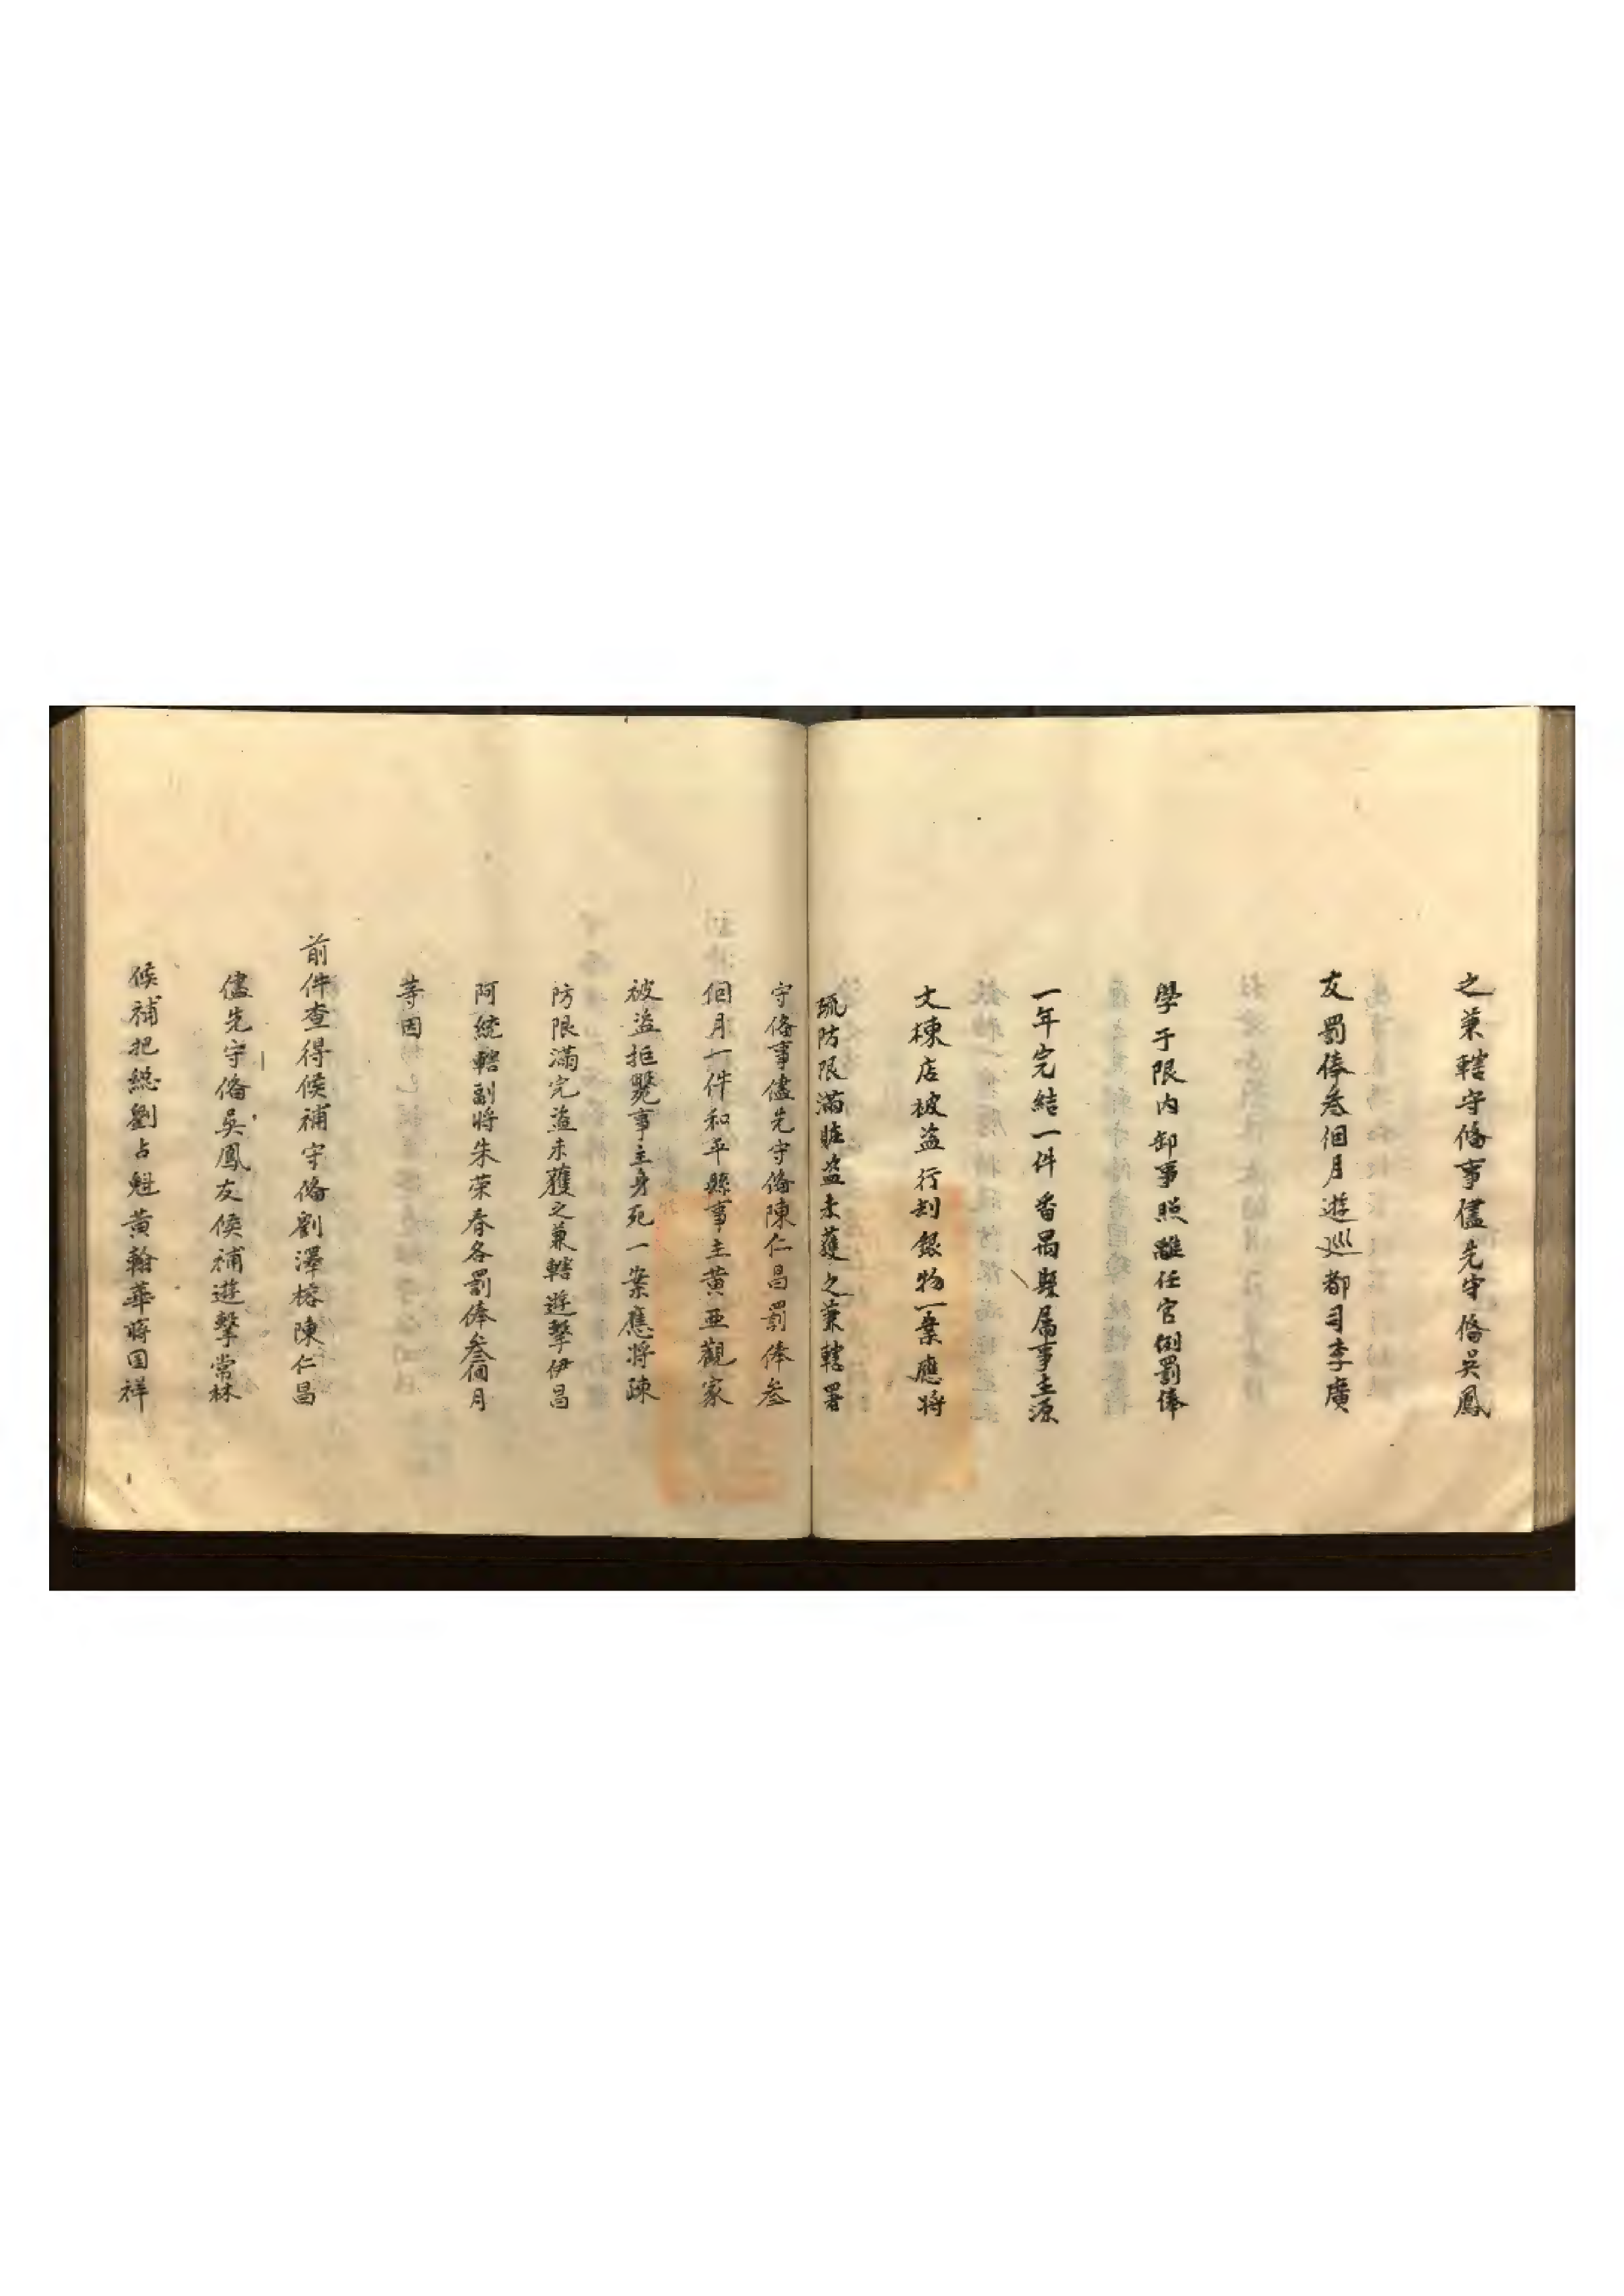 之兼轄守俻事儘先守俻吳鳳
友罰俸叁個月遊巡都司李廣
學于限内卸事照離任官例罰俸
一年完結一件番禺縣属事主源
文棟店被盗行刦銀物一案應將
疏防限滿賍盗未獲之兼轄署
守俻事儘先守俻陳仁昌罰俸叁
個月一件和平縣事主黄亜觀家
被盗拒斃事主身死一案應將疎
防限滿完盗未獲之兼轄遊擊伊昌
阿統轄副將朱荣春各罰俸叁個月
等因
前件查得候補守俻劉澤榕陳仁昌
儘先守俻吳鳳友候補遊擊常林
候補把緫劉占魁黄翰華蔣国祥